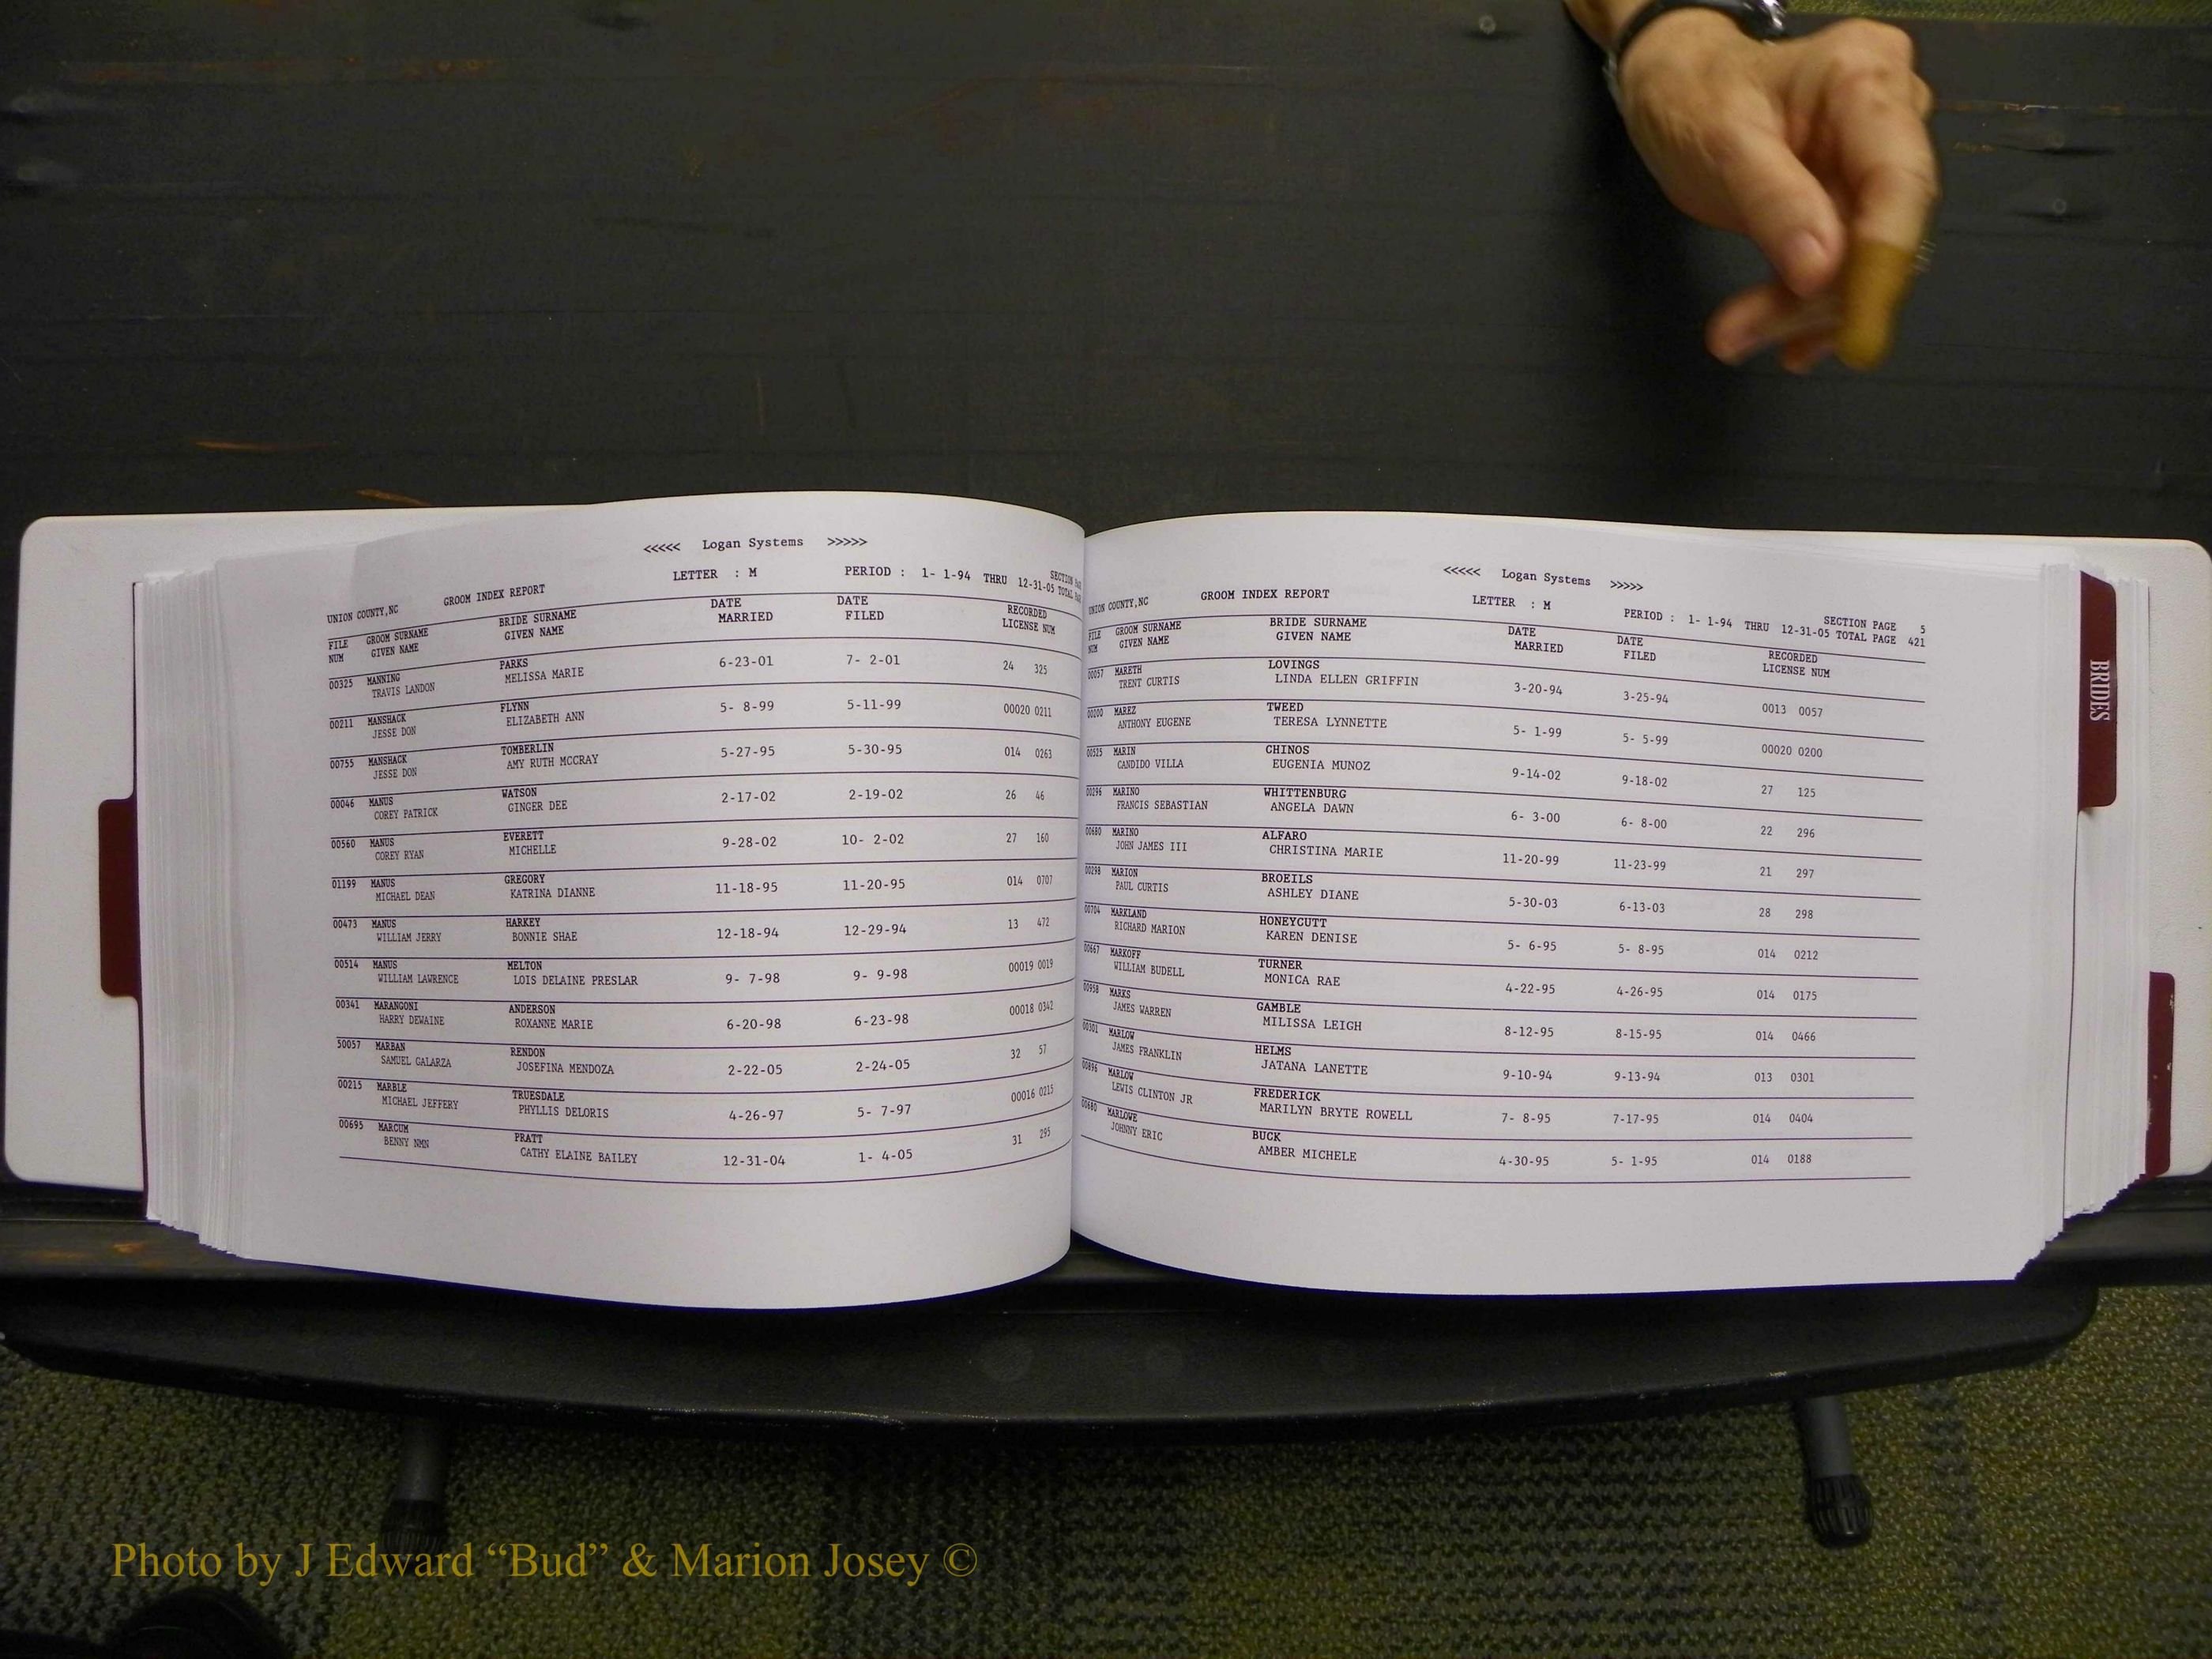 <<<<< Logan Systems >>>>>
LETTER : M PERIOD : 1- 1-94 THRU 12-31-05 SECTION
TOTAL
UNION COUNTY,NC GROOM INDEX REPORT
FILE GROOM SURNAME BRIDE SURNAME DATE DATE RECORDED
NUM GIVEN NAME GIVEN NAME MARRIED FILED LICENSE NUM
00325 MANNING PARKS 6-23-01 7- 2-01 24 325
TRAVIS LANDON MELISSA MARIE
00211 MANSHACK FLYNN 5- 8-99 5-11-99 00020 0211
JESSE DON ELIZABETH ANN
00755 MANSHACK TOMBERLIN 5-27-95 5-30-95 014 0263
JESSE DON AMY RUTH MCCRAY
00046 MANUS WATSON 2-17-02 2-19-02 26 46
COREY PATRICK GINGER DEE
00560 MANUS EVERETT 9-28-02 10- 2-02 27 160
COREY RYAN MICHELLE
01199 MANUS GREGORY 11-18-95 11-20-95 014 0707
MICHAEL DEAN KATRINA DIANNE
00473 MANUS HARKEY 12-18-94 12-29-94 13 472
WILLIAM JERRY BONNIE SHAE
00514 MANUS MELTON 9- 7-98 9- 9-98 00019 0019
WILLIAM LAWRENCE LOIS DELAINE PRESLAR
00341 MARANGONI ANDERSON 6-20-98 6-23-98 00018 0342
HARRY DEWAINE ROXANNE MARIE
50057 MARBAN RENDON 2-22-05 2-24-05 32 57
SAMUEL GALARZA JOSEFINA MENDOZA
00215 MARBLE TRUESDALE 4-26-97 5- 7-97 00016 0215
MICHAEL JEFFERY PHYLLIS DELORIS
00695 MARCUM PRATT 12-31-04 1- 4-05 31 295
BENNY NMN CATHY ELAINE BAILEY
<<<<< Logan Systems >>>>>
LETTER : M PERIOD : 1- 1-94 THRU 12-31-05 SECTION PAGE 5
TOTAL PAGE 421
UNION COUNTY,NC GROOM INDEX REPORT
FILE GROOM SURNAME BRIDE SURNAME DATE DATE RECORDED
NUM GIVEN NAME GIVEN NAME MARRIED FILED LICENSE NUM
00057 MARETH LOVINGS 3-20-94 3-25-94 0013 0057
TRENT CURTIS LINDA ELLEN GRIFFIN
00200 MAREZ TWEED 5- 1-99 5- 5-99 00020 0200
ANTHONY EUGENE TERESA LYNNETTE
00525 MARIN CHINOS 9-14-02 9-18-02 27 125
CANDIDO VILLA EUGENIA MUNOZ
00296 MARINO WHITTENBURG 6- 3-00 6- 8-00 22 296
FRANCIS SEBASTIAN ANGELA DAWN
00680 MARINO ALFARO 11-20-99 11-23-99 21 297
JOHN JAMES III CHRISTINA MARIE
00298 MARION BROEILS 5-30-03 6-13-03 28 298
PAUL CURTIS ASHLEY DIANE
00704 MARKLAND HONEYCUTT 5- 6-95 5- 8-95 014 0212
RICHARD MARION KAREN DENISE
00667 MARKOFF TURNER 4-22-95 4-26-95 014 0175
WILLIAM BUDELL MONICA RAE
00958 MARKS GAMBLE 8-12-95 8-15-95 014 0466
JAMES WARREN MILISSA LEIGH
00301 MARLOW HELMS 9-10-94 9-13-94 013 0301
JAMES FRANKLIN JATANA LANETTE
00896 MARLOW FREDERICK 7- 8-95 7-17-95 014 0404
LEWIS CLINTON JR MARILYN BRYTE ROWELL
00680 MARLOWE BUCK 4-30-95 5- 1-95 014 0188
JOHNNY ERIC AMBER MICHELE
BRIDES
Photo by J Edward “Bud” & Marion Josey ©